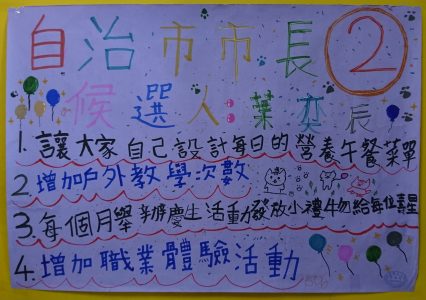 自治市市長 2
候選人:葉亦辰
1. 讓大家自己設計每日的營養午餐菜單
2. 增加戶外教學次數
3. 每個月舉辦慶生活動發放小禮物給每位壽星
4. 增加職業體驗活動